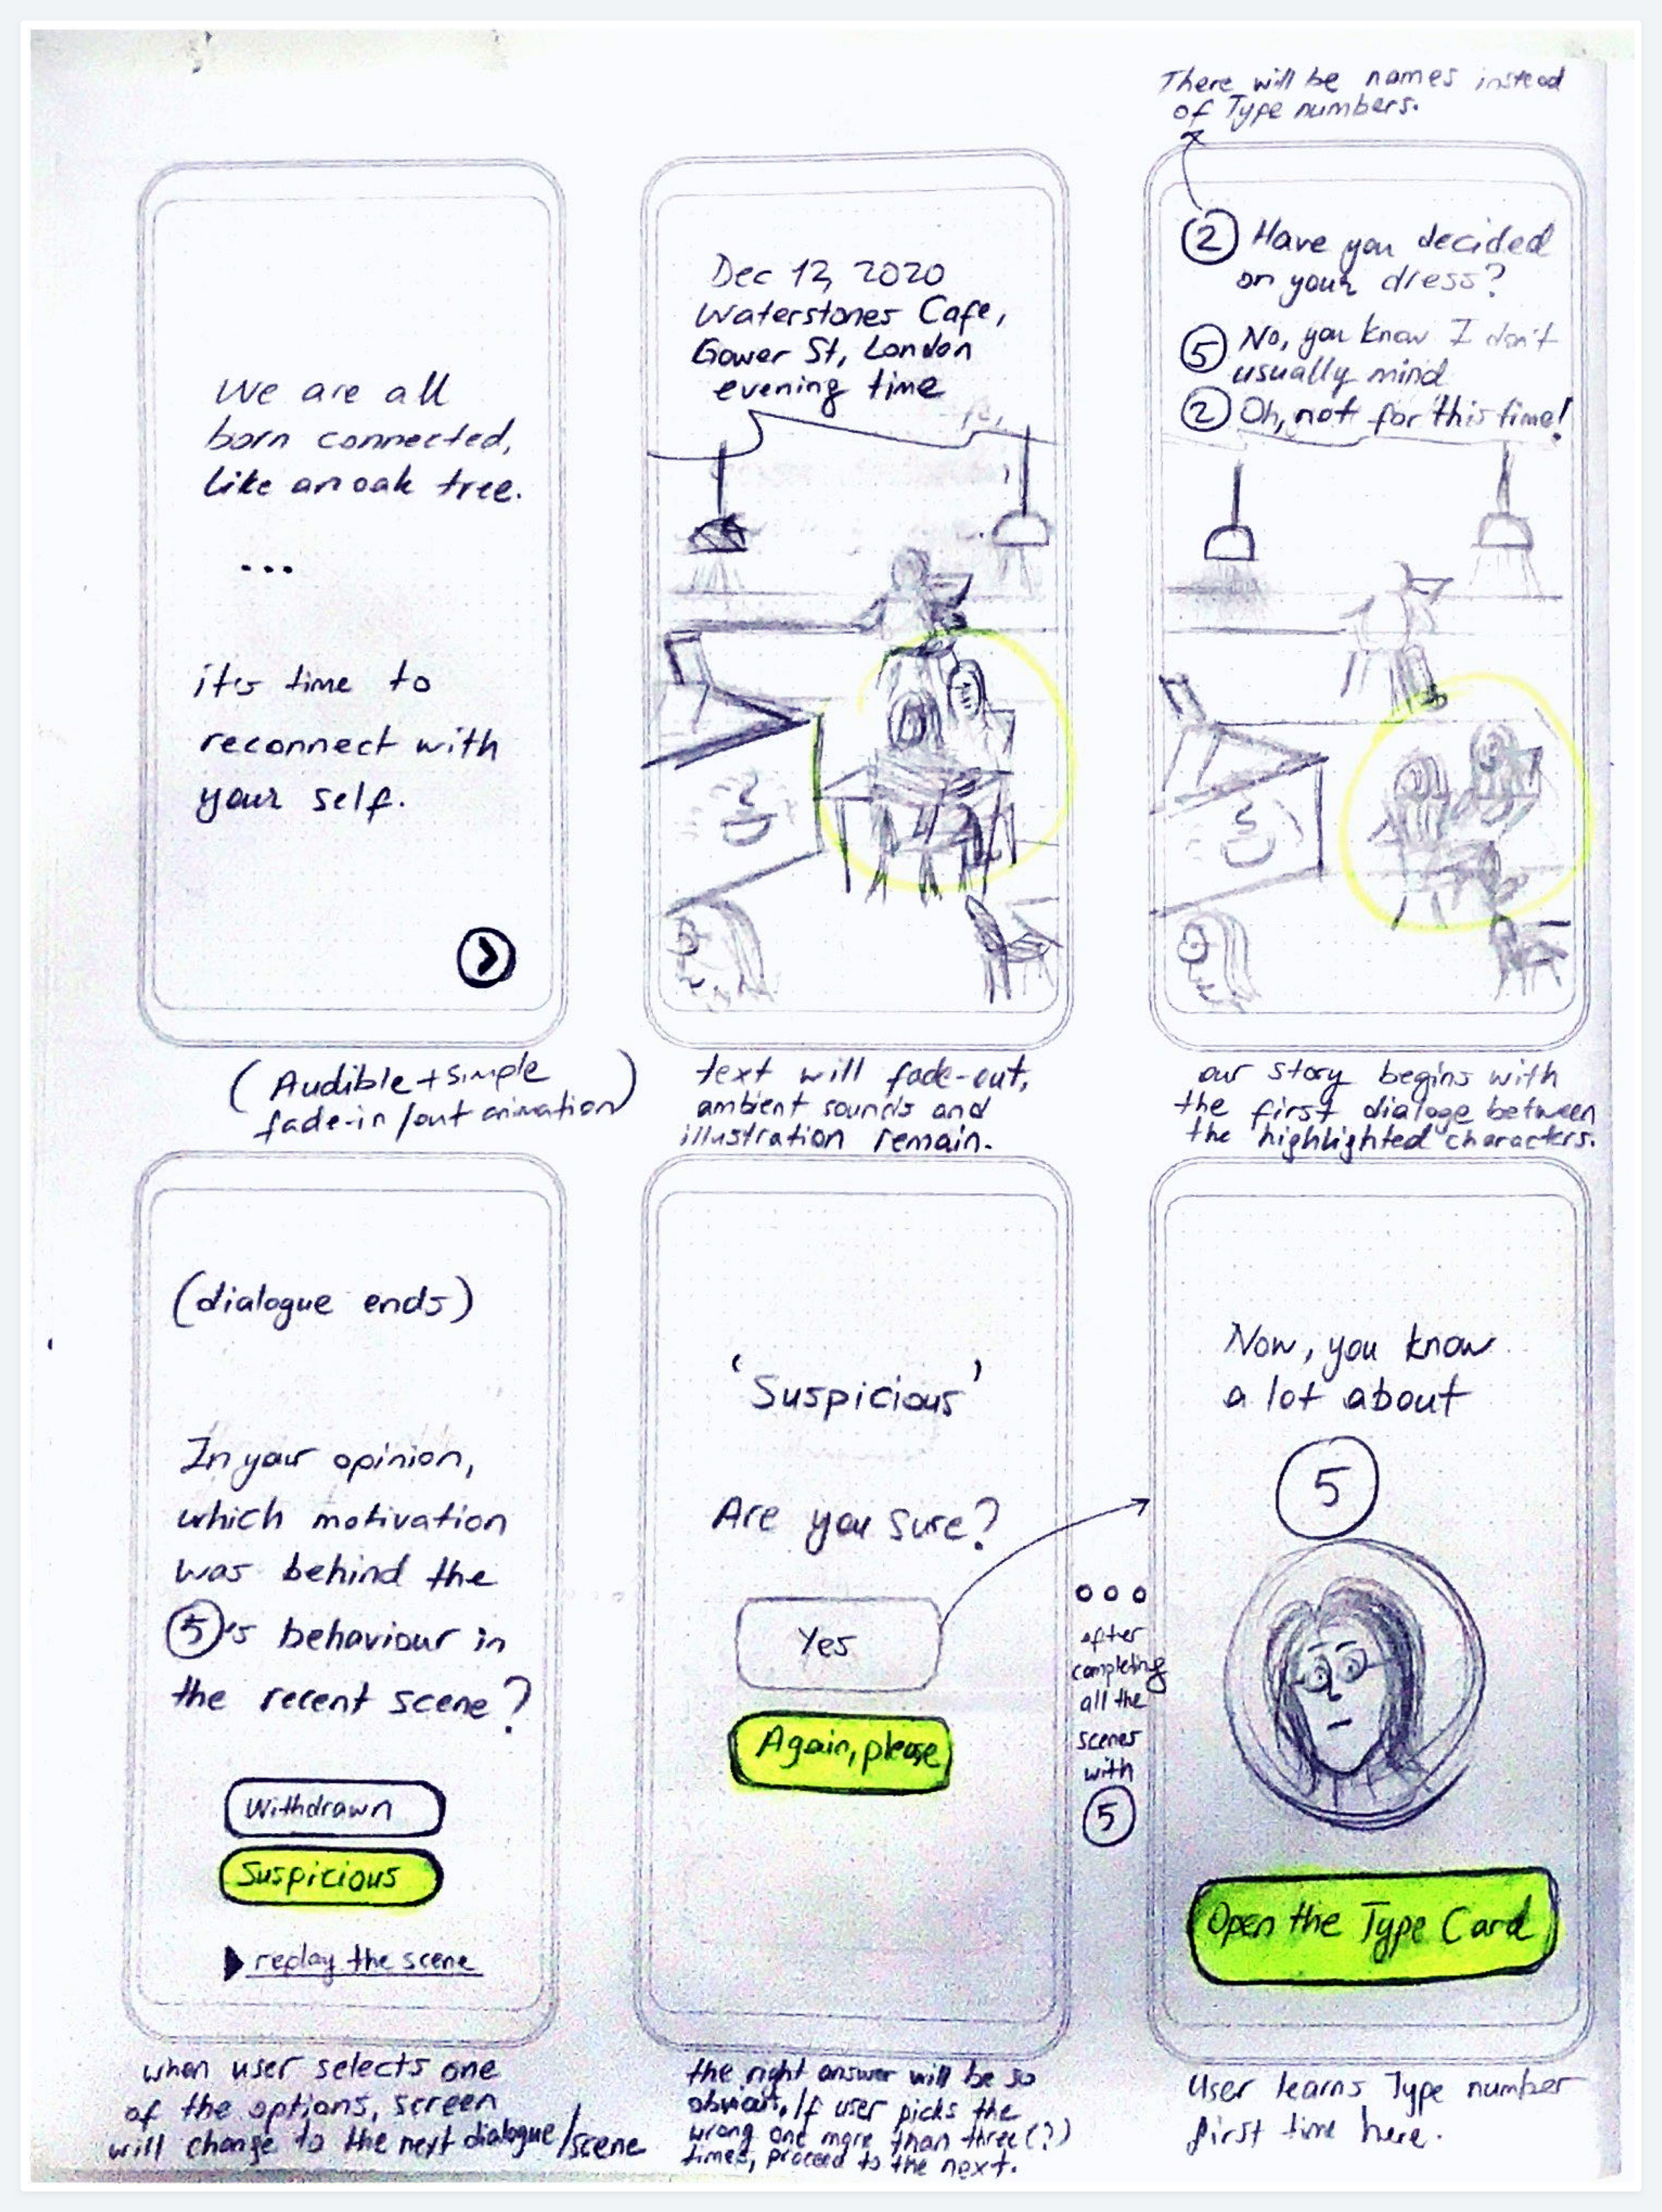 There will be names instead
of Type numbers.
We are all
born connected,
like an oak tree.
...
it's time to
reconnect with
your self.
(Audible + simple
fade-in/out animation)
Dec 12, 2020
Waterstones Cafe,
Gower St, London
evening time
text will fade-out,
ambient sounds and
illustration remain.
2 Have you decided
on your dress?
5 No, you know I don't
usually mind
2 Oh, not for this time!
our story begins with
the first dialoge between
the highlighted characters.
(dialogue ends)
In your opinion,
which motivation
was behind the
5's behaviour in
the recent scene?
Withdrawn
Suspicious
replay the scene
when user selects one
of the options, screen
will change to the next dialogue/scene
'Suspicious'
Are you sure?
Yes
Again, please
the right answer will be so
obvious, If user picks the
wrong one more than three(?)
times, proceed to the next.
ooo
after
completing
all the
scenes
with
5
Now, you know
a lot about
5
Open the Type Card
User learns Type number
first time here.